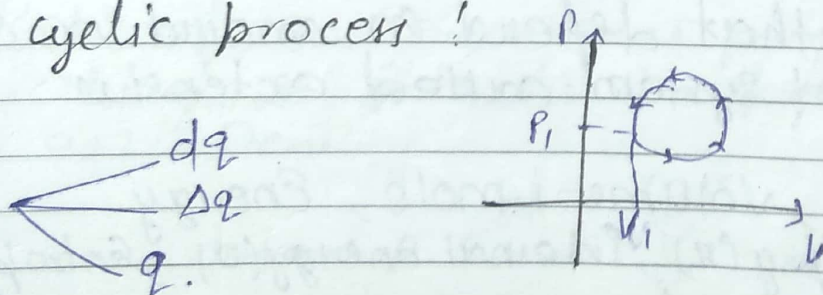 cyclic process !
P
dq
Δq
q.
P1
V1
V